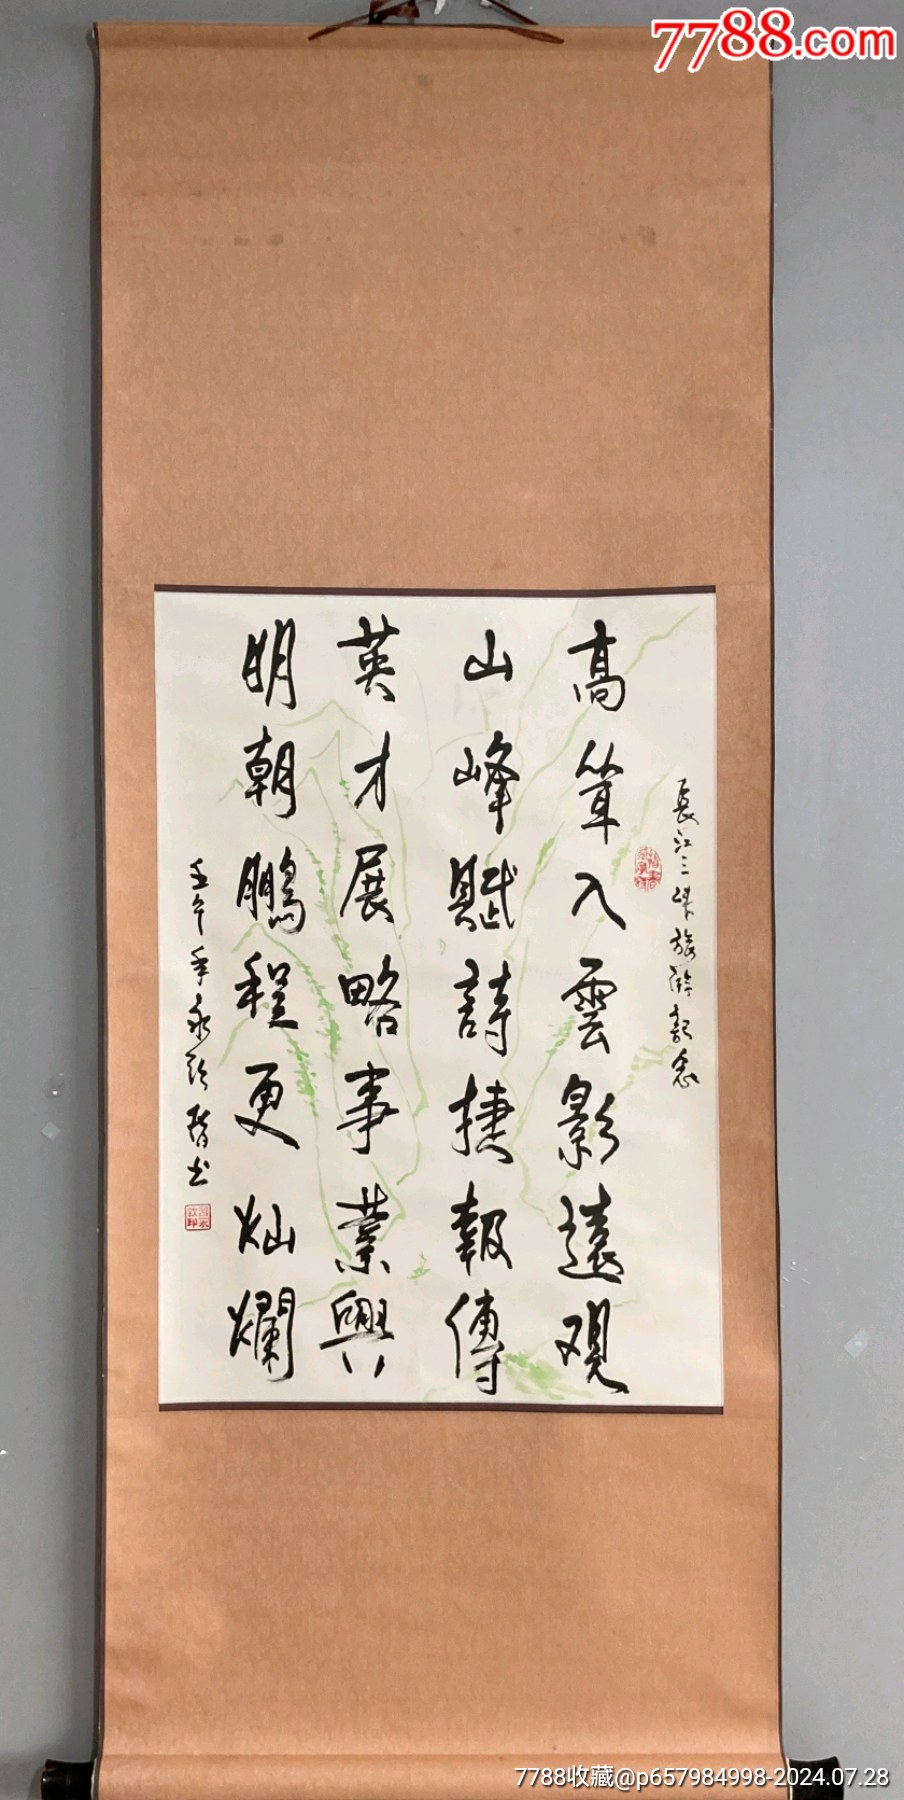 7788.com
長江三峡旅游記念
高耸入雲影遠观
山峰賦詩捷報傳
英才展略事業興
明朝鵬程更灿爛
壬午年永
书
7788收藏@p657984998-2024.07.28